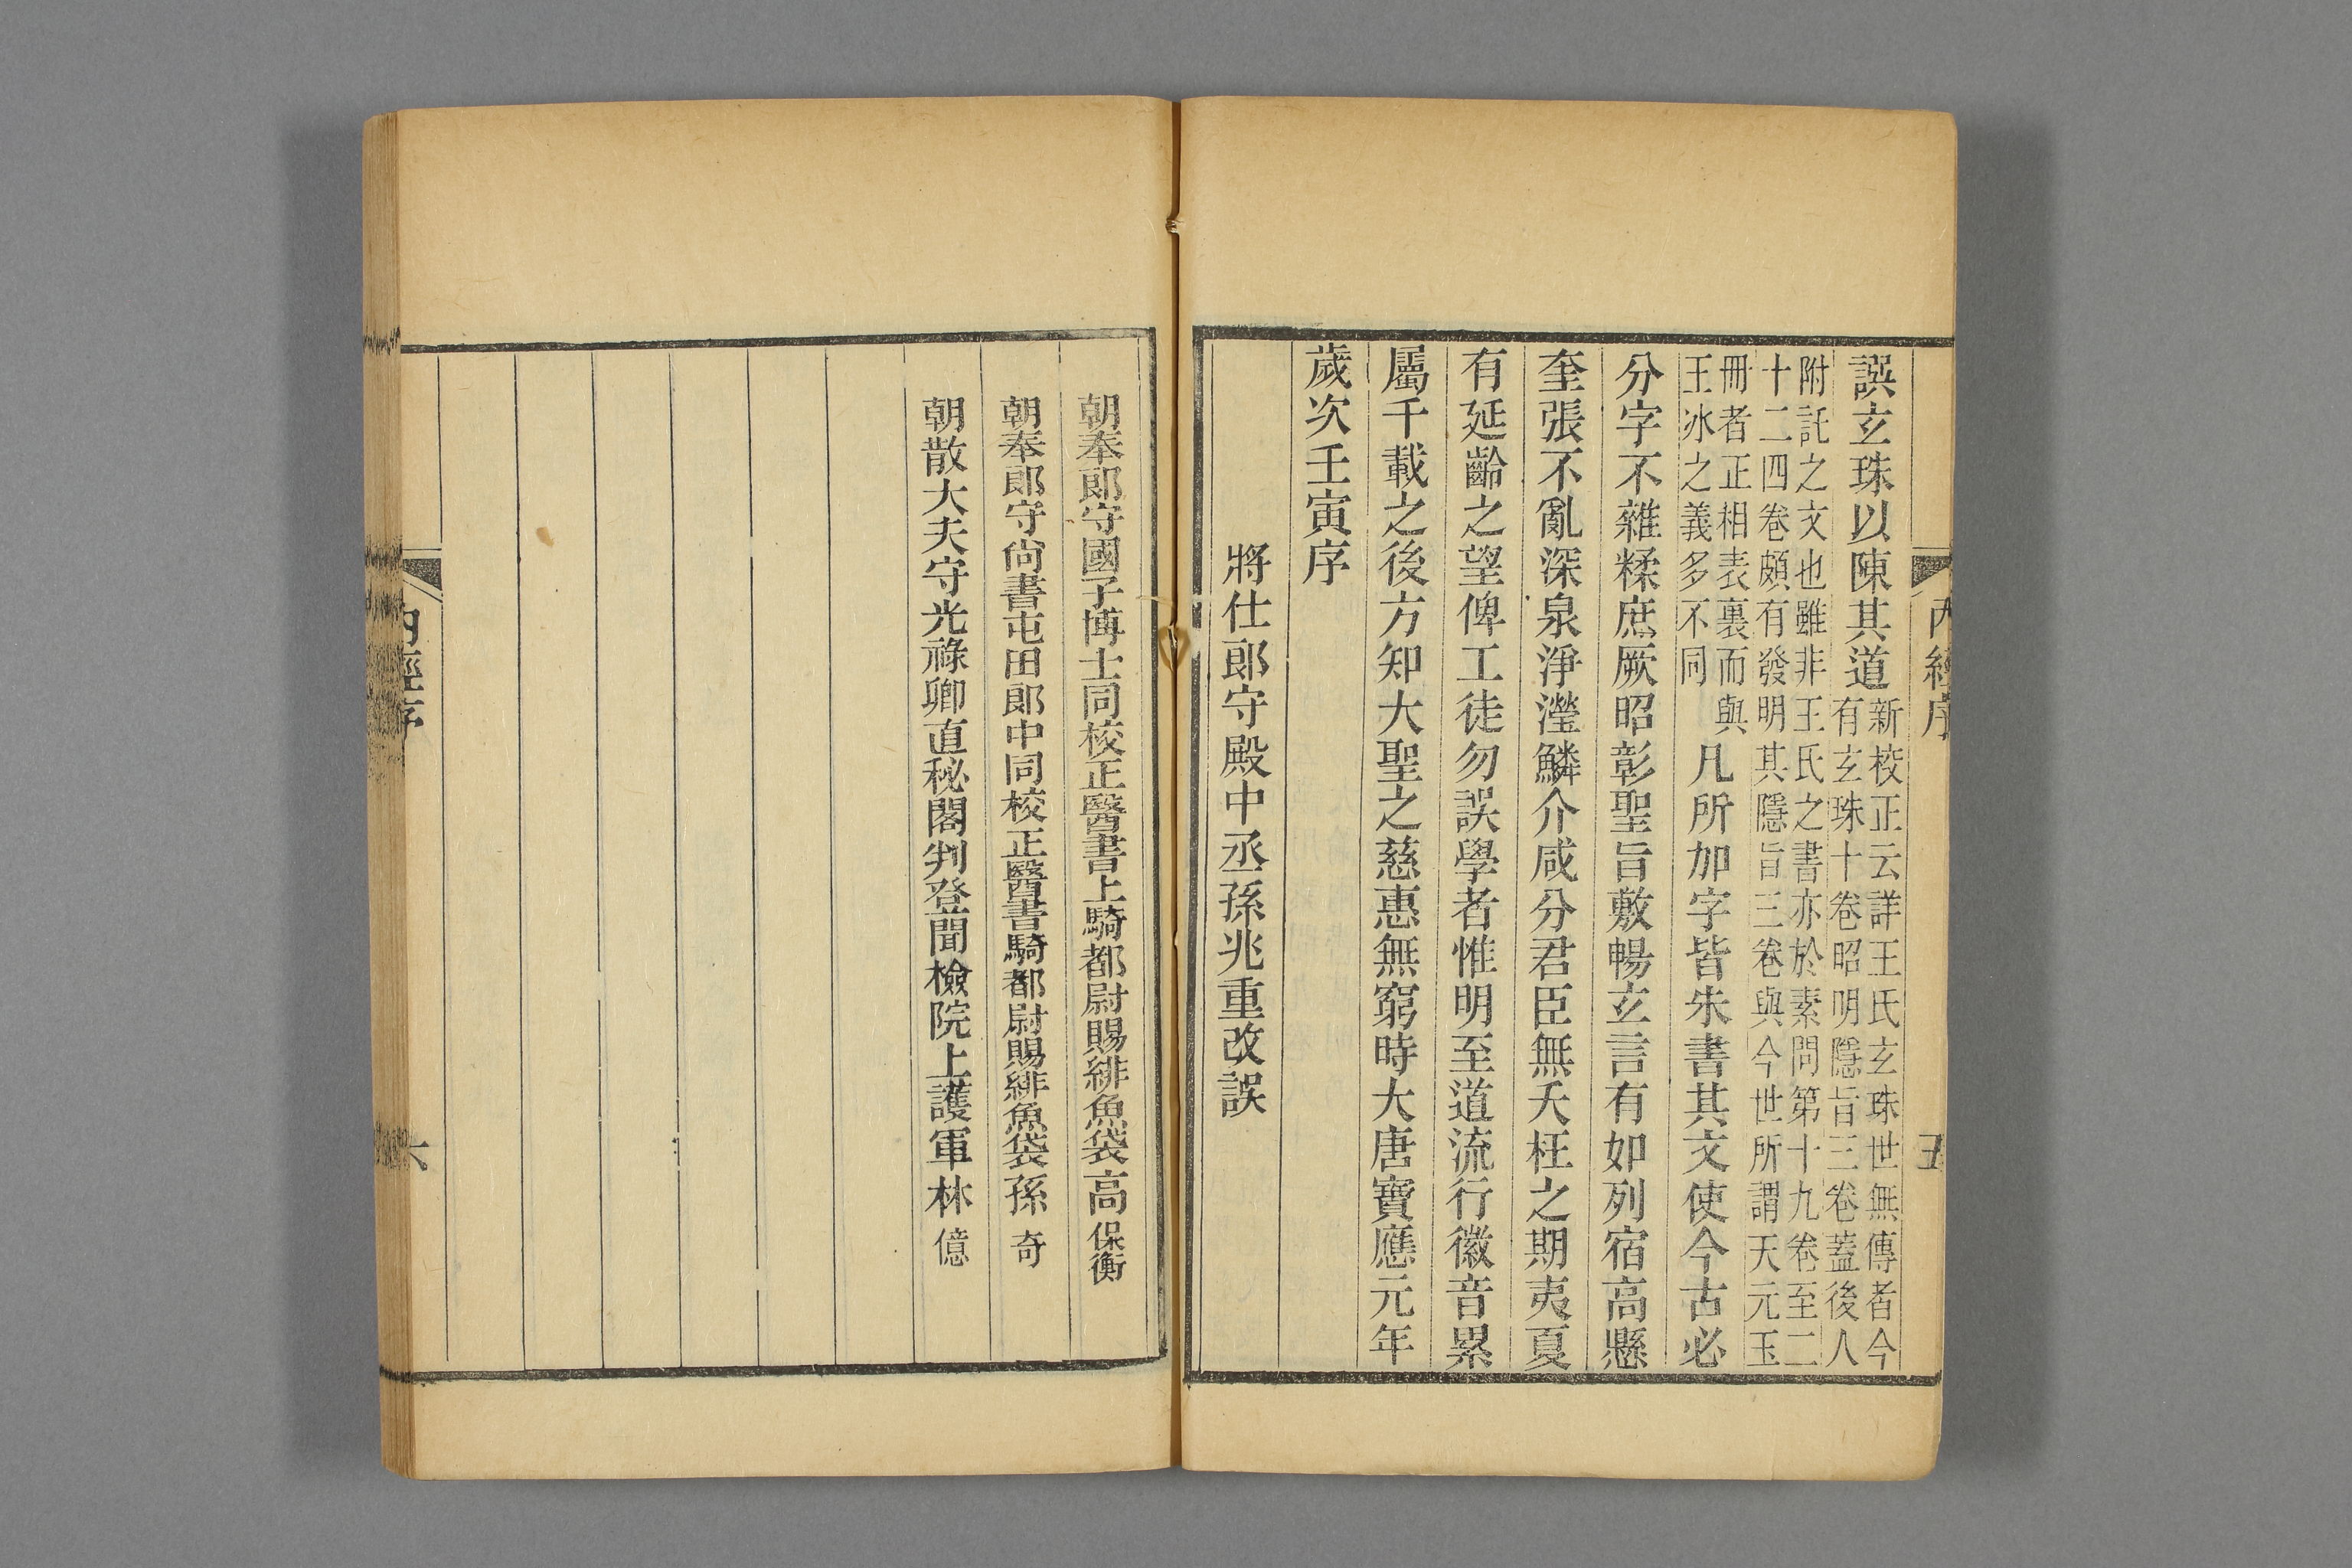 內經序
五
譔玄珠以陳其道新校正云詳王氏玄珠世無傳者今
有玄珠十卷昭明隱旨三卷蓋後人
附託之文也雖非王氏之書亦於素問第十九卷至二
十二四卷頗有發明其隱旨三卷與今世所謂天元玉
冊者正相表裏而與
王冰之義多不同
凡所加字皆朱書其文使今古必
分字不雜糅庶厥昭彰聖旨敷暢玄言有如列宿高懸
奎張不亂深泉淨瀅鱗介咸分君臣無夭枉之期夷夏
有延齡之望俾工徒勿誤學者惟明至道流行徽音累
屬千載之後方知大聖之慈惠無窮時大唐寶應元年
歲次壬寅序
將仕郎守殿中丞孫兆重改誤
朝奉郎守國子博士同校正醫書上騎都尉賜緋魚袋高保衡
朝奉郎守尚書屯田郎中同校正醫書騎都尉賜緋魚袋孫奇
朝散大夫守光祿卿直秘閣判登聞檢院上護軍林億
內經序
六